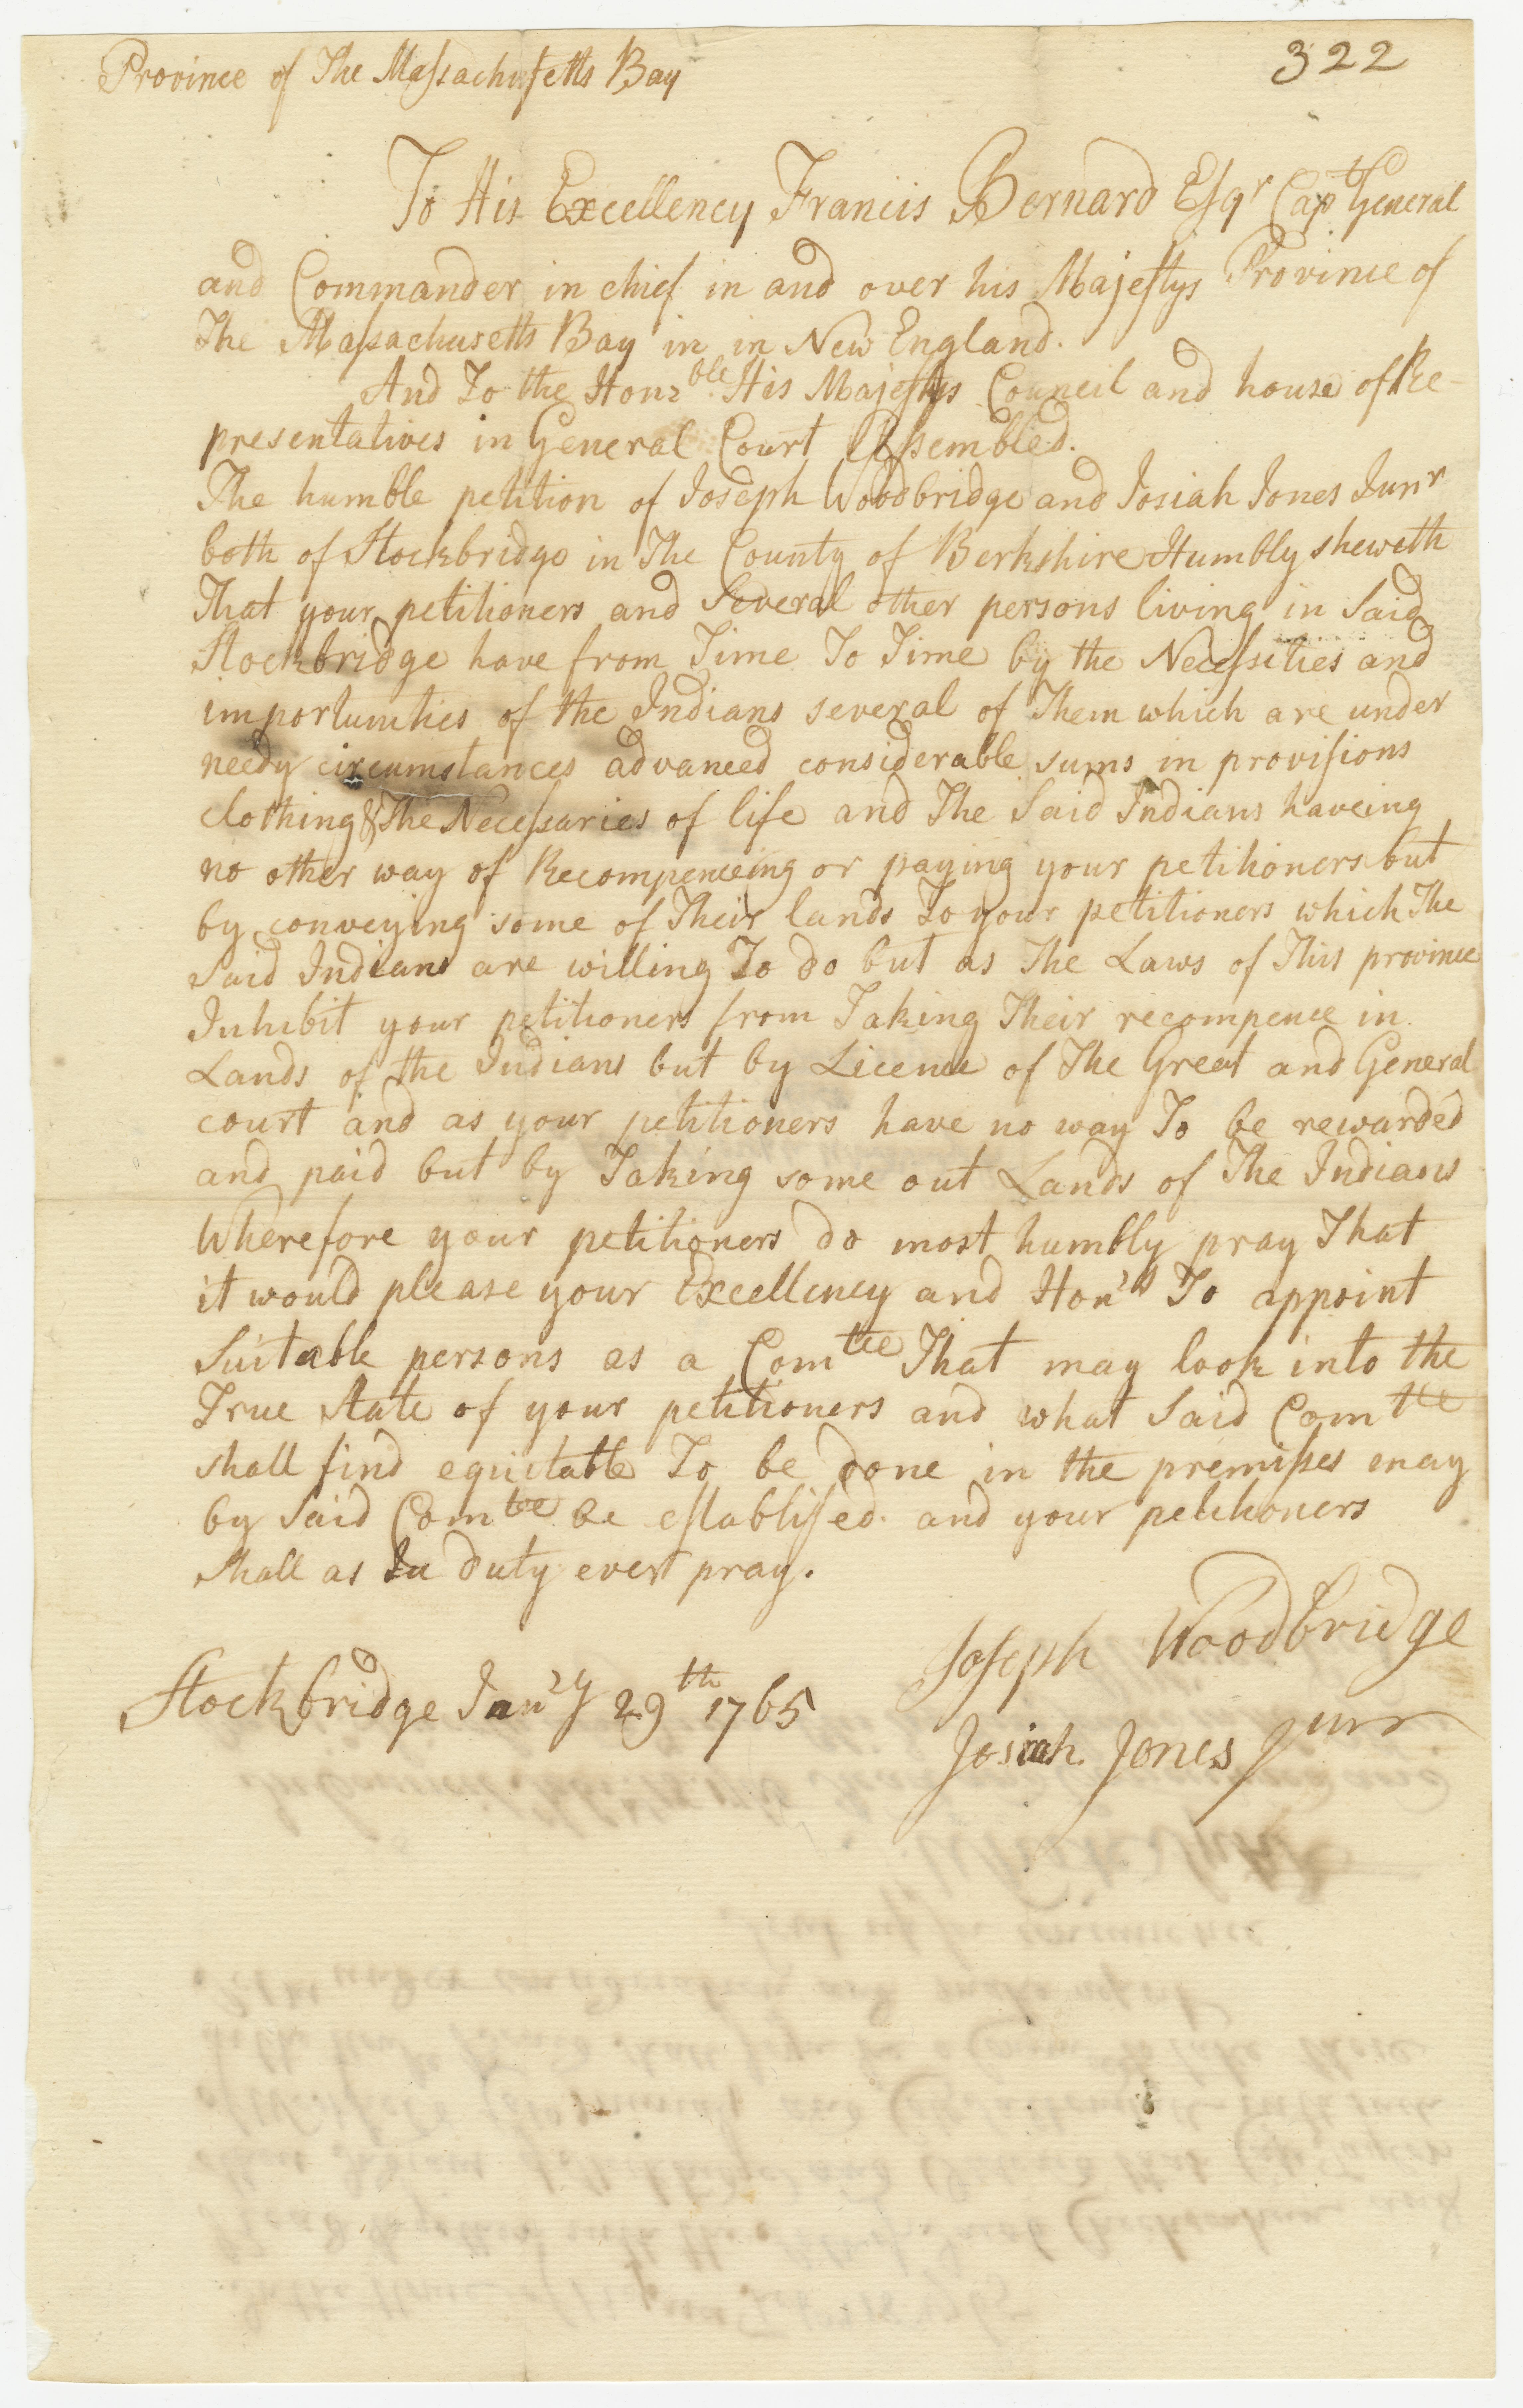 322
Province of The Massachusetts Bay
To His Excellency Francis Bernard Esqr Capt General
and Commander in chief in and over his Majestys Province of
The Massachusetts Bay in in New England.
And To the Honrble His Majestys Council and house of Re-
presentatives in General Court Assembled.
The humble petition of Joseph Woodbridge and Josiah Jones Junr
both of Stockbridge in The County of Berkshire Humbly sheweth
That your petitioners and Several other persons living in Said
Stockbridge have from Time To Time by the Necessities and
importunities of the Indians several of Them which are under
needy circumstances advanced considerable sums in provisions
clothing & The Necessaries of life and The Said Indians haveing
no other way of Recompenceing or paying your petitioners but
by conveying some of Their lands To your petitioners which The
Said Indians are willing To do but as The Laws of This province
Inhibit your petitioners from Taking Their recompence in
Lands of the Indians but by Licence of The Great and General
court and as your petitioners have no way To be rewarded
and paid but by Taking some out Lands of The Indians
Wherefore your petitioners do most humbly pray That
it would please your Excellency and Honrs To appoint
Suitable persons as a Comtee That may look into the
True State of your petitioners and what Said Comtee
shall find equitable To be done in the premisses may
by Said Comtee be establised and your petitioners
shall as In duty ever pray.
Joseph Woodbridge
Stockbridge Janry 29th 1765
Josiah Jones Junr